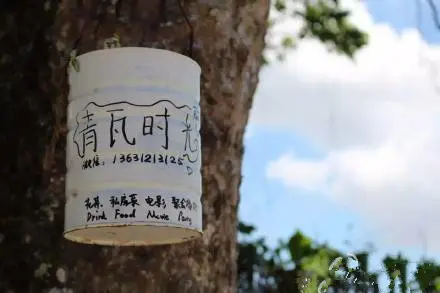 青瓦时光
微信: 13631213125
私房菜 电影 聚会
Drink Food Movie Pary